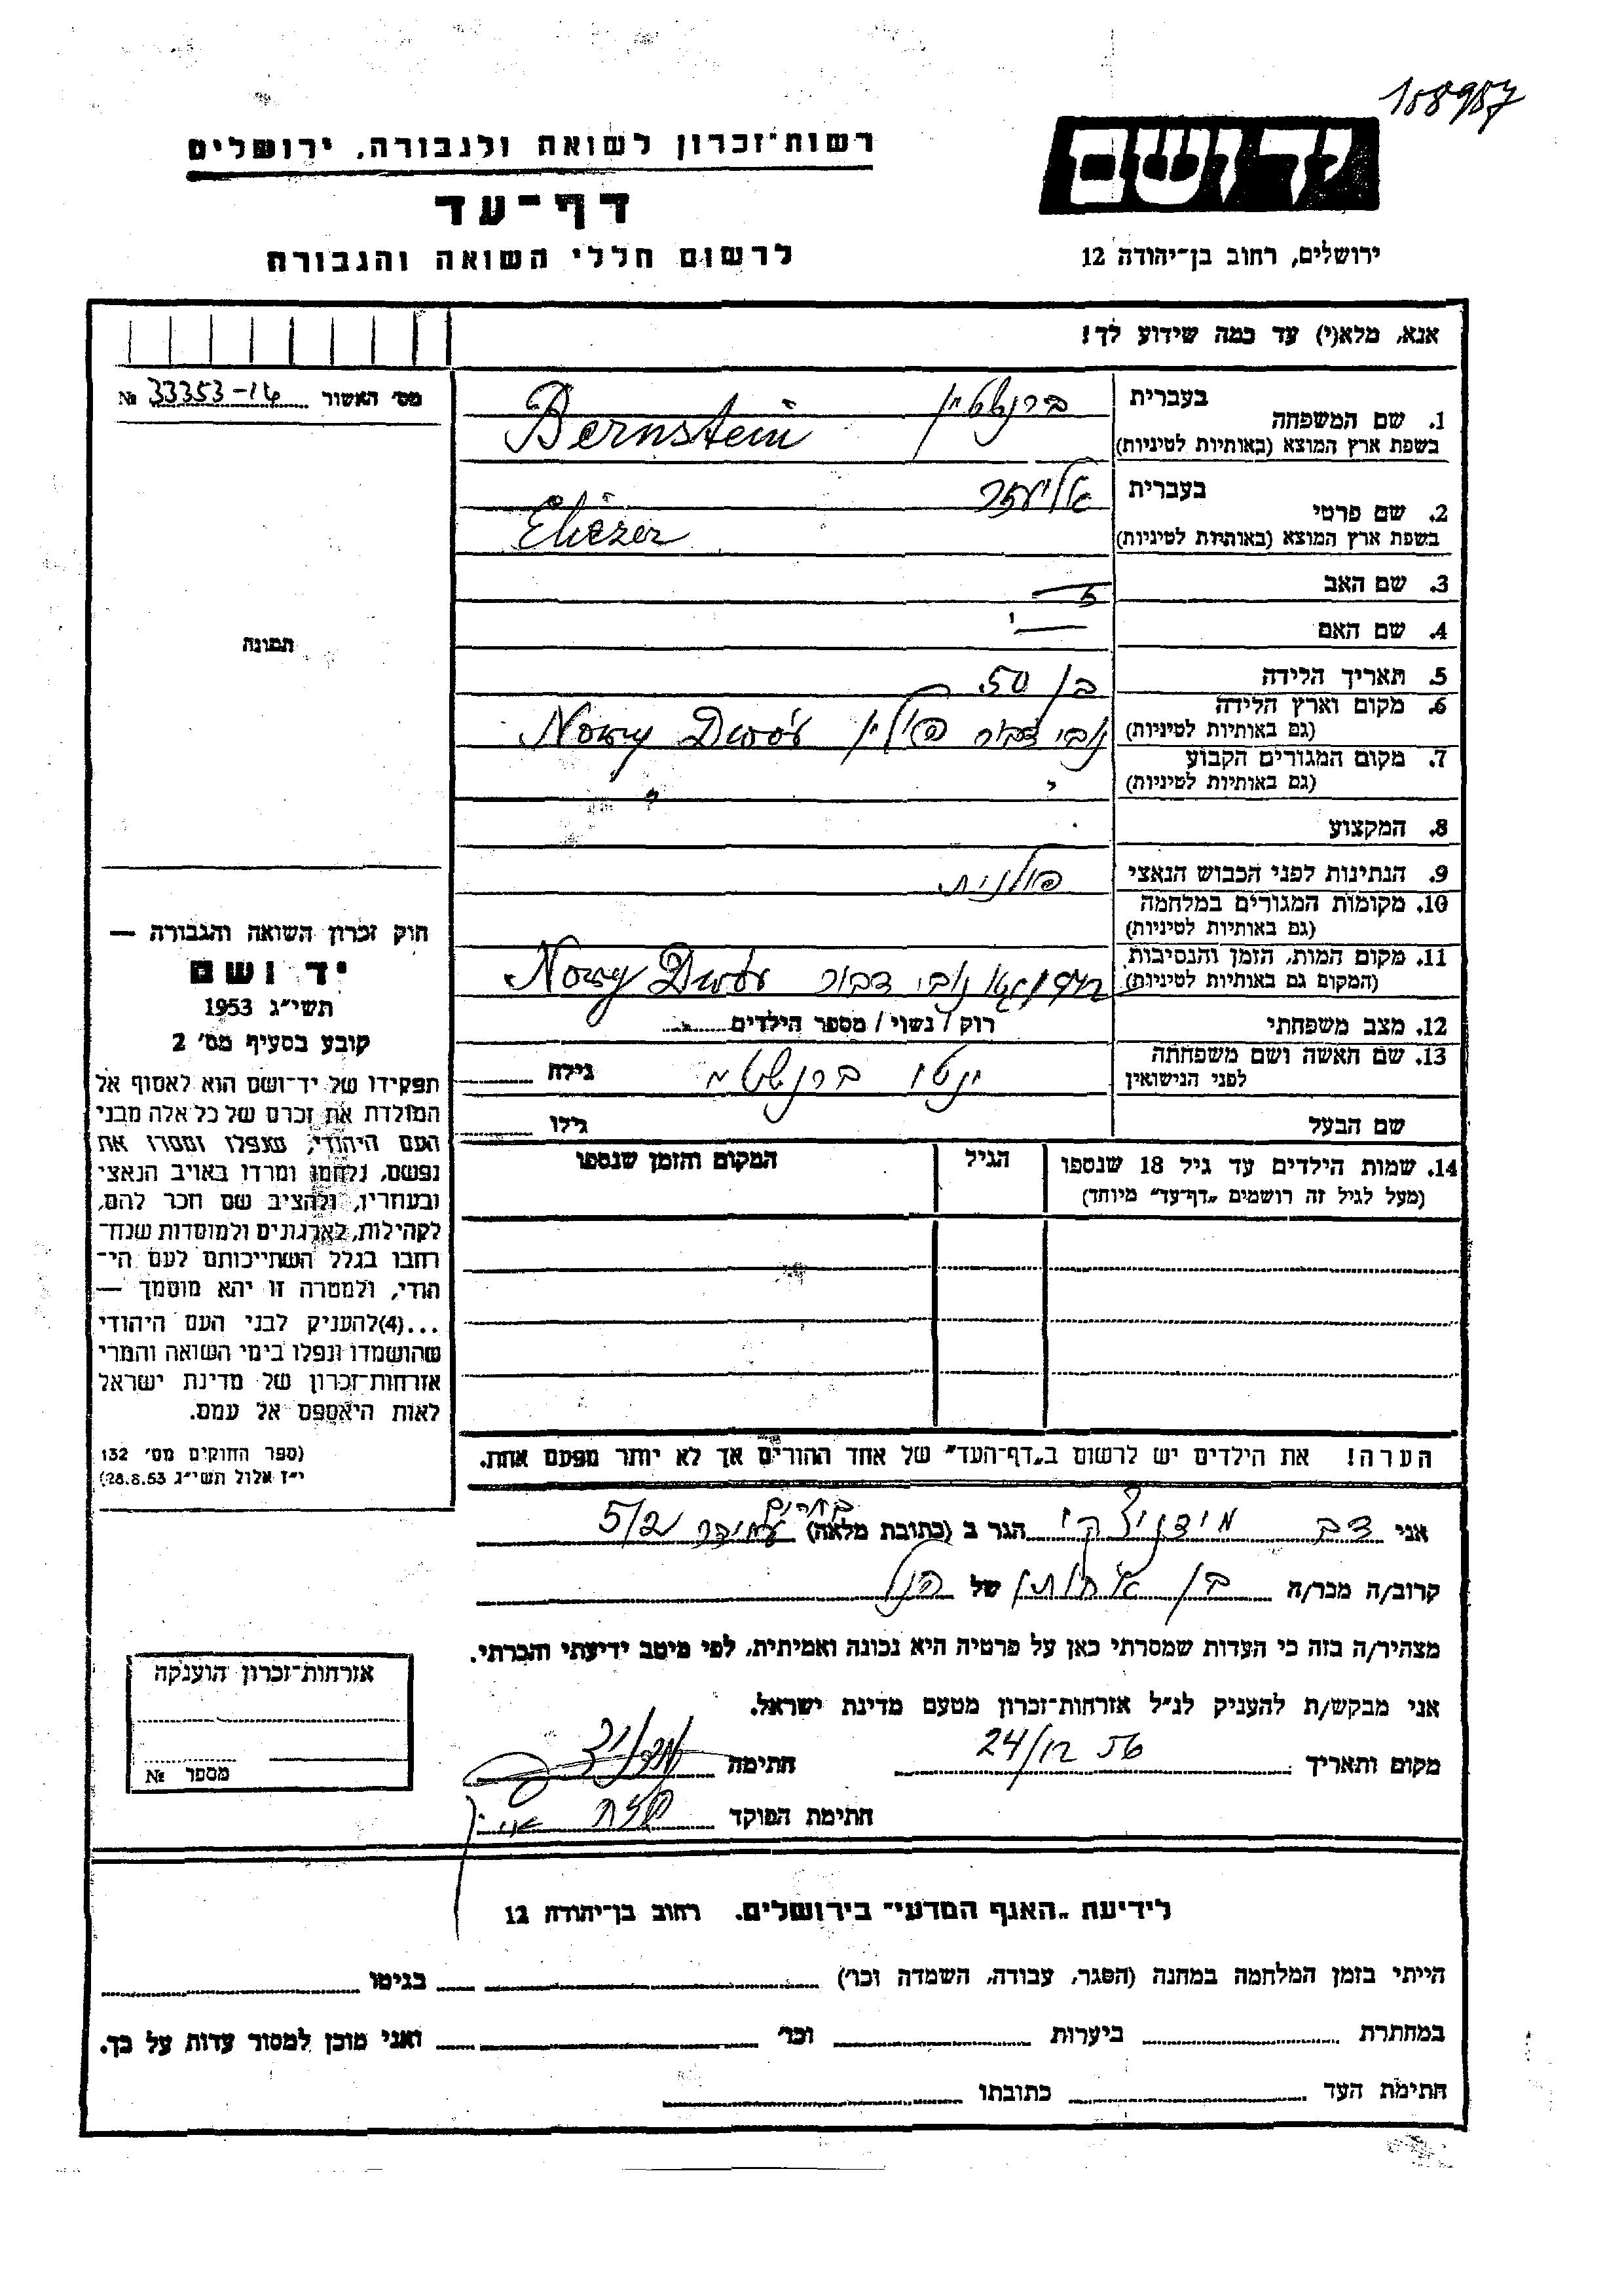 108987
רשות־זכרון לשואה ולגבורה, ירושלים
יד ושם
דף־עד
לרשום חללי השואה והגבורה
ירושלים, רחוב בן־יהודה 12
אנא, מלא(י) עד כמה שידוע לך!
מס׳ האשור 33353-16 №
1. שם המשפחה
בעברית ברנשטיין
בשפת ארץ המוצא (באותיות לטיניות) Bernstein
2. שם פרטי
בעברית אליעזר
בשפת ארץ המוצא (באותיות לטיניות) Eliezer
3. שם האב
4. שם האם
תמונה
5. תאריך הלידה בן 50
6. מקום וארץ הלידה
(גם באותיות לטיניות) נובי דבור פולין Nowy Dwór
7. מקום המגורים הקבוע
(גם באותיות לטיניות) " "
8. המקצוע
9. הנתינות לפני הכבוש הנאצי פולנית
10. מקומות המגורים במלחמה
(גם באותיות לטיניות)
11. מקום המות, הזמן והנסיבות
(המקום גם באותיות לטיניות) נובי דבור Nowy Dwór
12. מצב משפחתי רוק / נשוי / מספר הילדים
13. שם האשה ושם משפחתה
לפני הנישואין ברנשטיין גילה
שם הבעל גילו
14. שמות הילדים עד גיל 18 שנספו
(מעל לגיל זה רושמים „דף־עד” מיוחד)
הגיל
המקום והזמן שנספו
חוק זכרון השואה והגבורה —
יד ושם
תשי״ג 1953
קובע בסעיף מס׳ 2
תפקידו של יד־ושם הוא לאסוף אל
המולדת את זכרם של כל אלה מבני
העם היהודי, שנפלו ומסרו את
נפשם, נלחמו ומרדו באויב הנאצי
ובעוזריו, ולהציב שם וזכר להם,
לקהילות, לארגונים ולמוסדות שנח־
רבו בגלל השתייכותם לעם הי־
הודי, ולמטרה זו יהא מוסמך —
...(4)להעניק לבני העם היהודי
שהושמדו ונפלו בימי השואה והמרי
אזרחות־זכרון של מדינת ישראל
לאות היאספם אל עמם.
(ספר החוקים מס׳ 132
י״ז אלול תשי״ג 28.8.53)
הערה! את הילדים יש לרשום ב„דף־העד” של אחד ההורים אך לא יותר מפעם אחת.
אני דב הגר ב (כתובת מלאה) 5/2
קרוב/ה מכר/ה בן אחותו של הנ״ל
מצהיר/ה בזה כי העדות שמסרתי כאן על פרטיה היא נכונה ואמיתית, לפי מיטב ידיעתי והכרתי.
אני מבקש/ת להעניק לנ״ל אזרחות־זכרון מטעם מדינת ישראל.
מקום ותאריך 24/12 56 חתימה
חתימת הפוקד
אזרחות־זכרון הוענקה
מספר №
לידיעת „האגף המדעי” בירושלים. רחוב בן־יהודה 12
הייתי בזמן המלחמה במחנה (הסגר, עבודה, השמדה וכו׳) בגיטו
במחתרת ביערות וכו׳ ואני מוכן למסור עדות על כך.
חתימת העד כתובתו